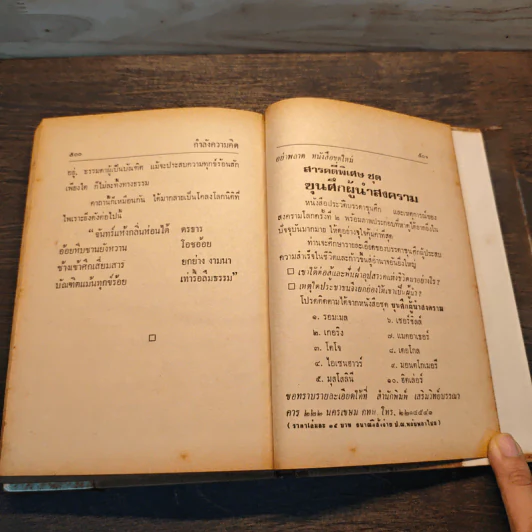 ๕๐๐ กำลังความคิด
อยู่, ธรรมดาผู้เป็นบัณฑิต แม้จะประสบความทุกข์ร้อนสัก
เพียงใด ก็ไม่ละทิ้งทางธรรม
คาถานี้ก็เหมือนกัน ได้มากลายเป็นโคลงโลกนิติที่
ไพเราะยิ่งดังต่อไปนี้
“จันทร์แห้งกลิ่นห่อนได้ ดรธาร
อ้อยหีบชานยังหวาน โอชอ้อย
ช้างเข้าศึกเสี่ยมสาร ยกย่าง งามนา
บัณฑิตแม้นทุกข์ร้อย เท่ารื้อลืมธรรม”
อย่าพลาด หนังสือชุดใหม่ ๕๐๑
สารคดีพิเศษ ชุด
ขุนศึกผู้นำสงคราม
หนังสือประวัติบรรดาขุนศึก และเหตุการณ์ของ
สงครามโลกครั้งที่ ๒ พร้อมภาพประกอบที่หาดูได้ยากยิ่งใน
ปัจจุบันนี้มากมาย ให้คุณอย่างจุใจคุ้มค่าที่สุด
ท่านจะศึกษารายละเอียดของบรรดาขุนศึกผู้ประสบ
ความสำเร็จในชีวิตและก้าวขึ้นสู่อำนาจอันยิ่งใหญ่
เขาได้ต่อสู้และดิ้นรนอุปสรรคแห่งชีวิตมาอย่างไร?
เหตุใดประชาชนจึงยกย่องให้เขาเป็นผู้นำ?
โปรดติดตามได้จากหนังสือชุด ขุนศึกผู้นำสงคราม
๑. รอมเมล ๖. เชอร์ชิลล์
๒. เกอริง ๗. แมคอาเธอร์
๓. โตโจ ๘. เดอโกล
๔. ไอเซนฮาวร์ ๙. มอนต์โกเมอรี
๕. มุสโสลินี ๑๐. ฮิตเล่อร์
ขอทราบรายละเอียดได้ที่ สำนักพิมพ์ เสริมวิทย์บรรณา
คาร ๒๒๒ นครเขษม กทม. โทร. ๒๒๑๔๕๔๑
( ราคาเล่มละ ๑๕ บาท ธนาณัติสั่งจ่าย ป.ณ.พลับพลาไชย )